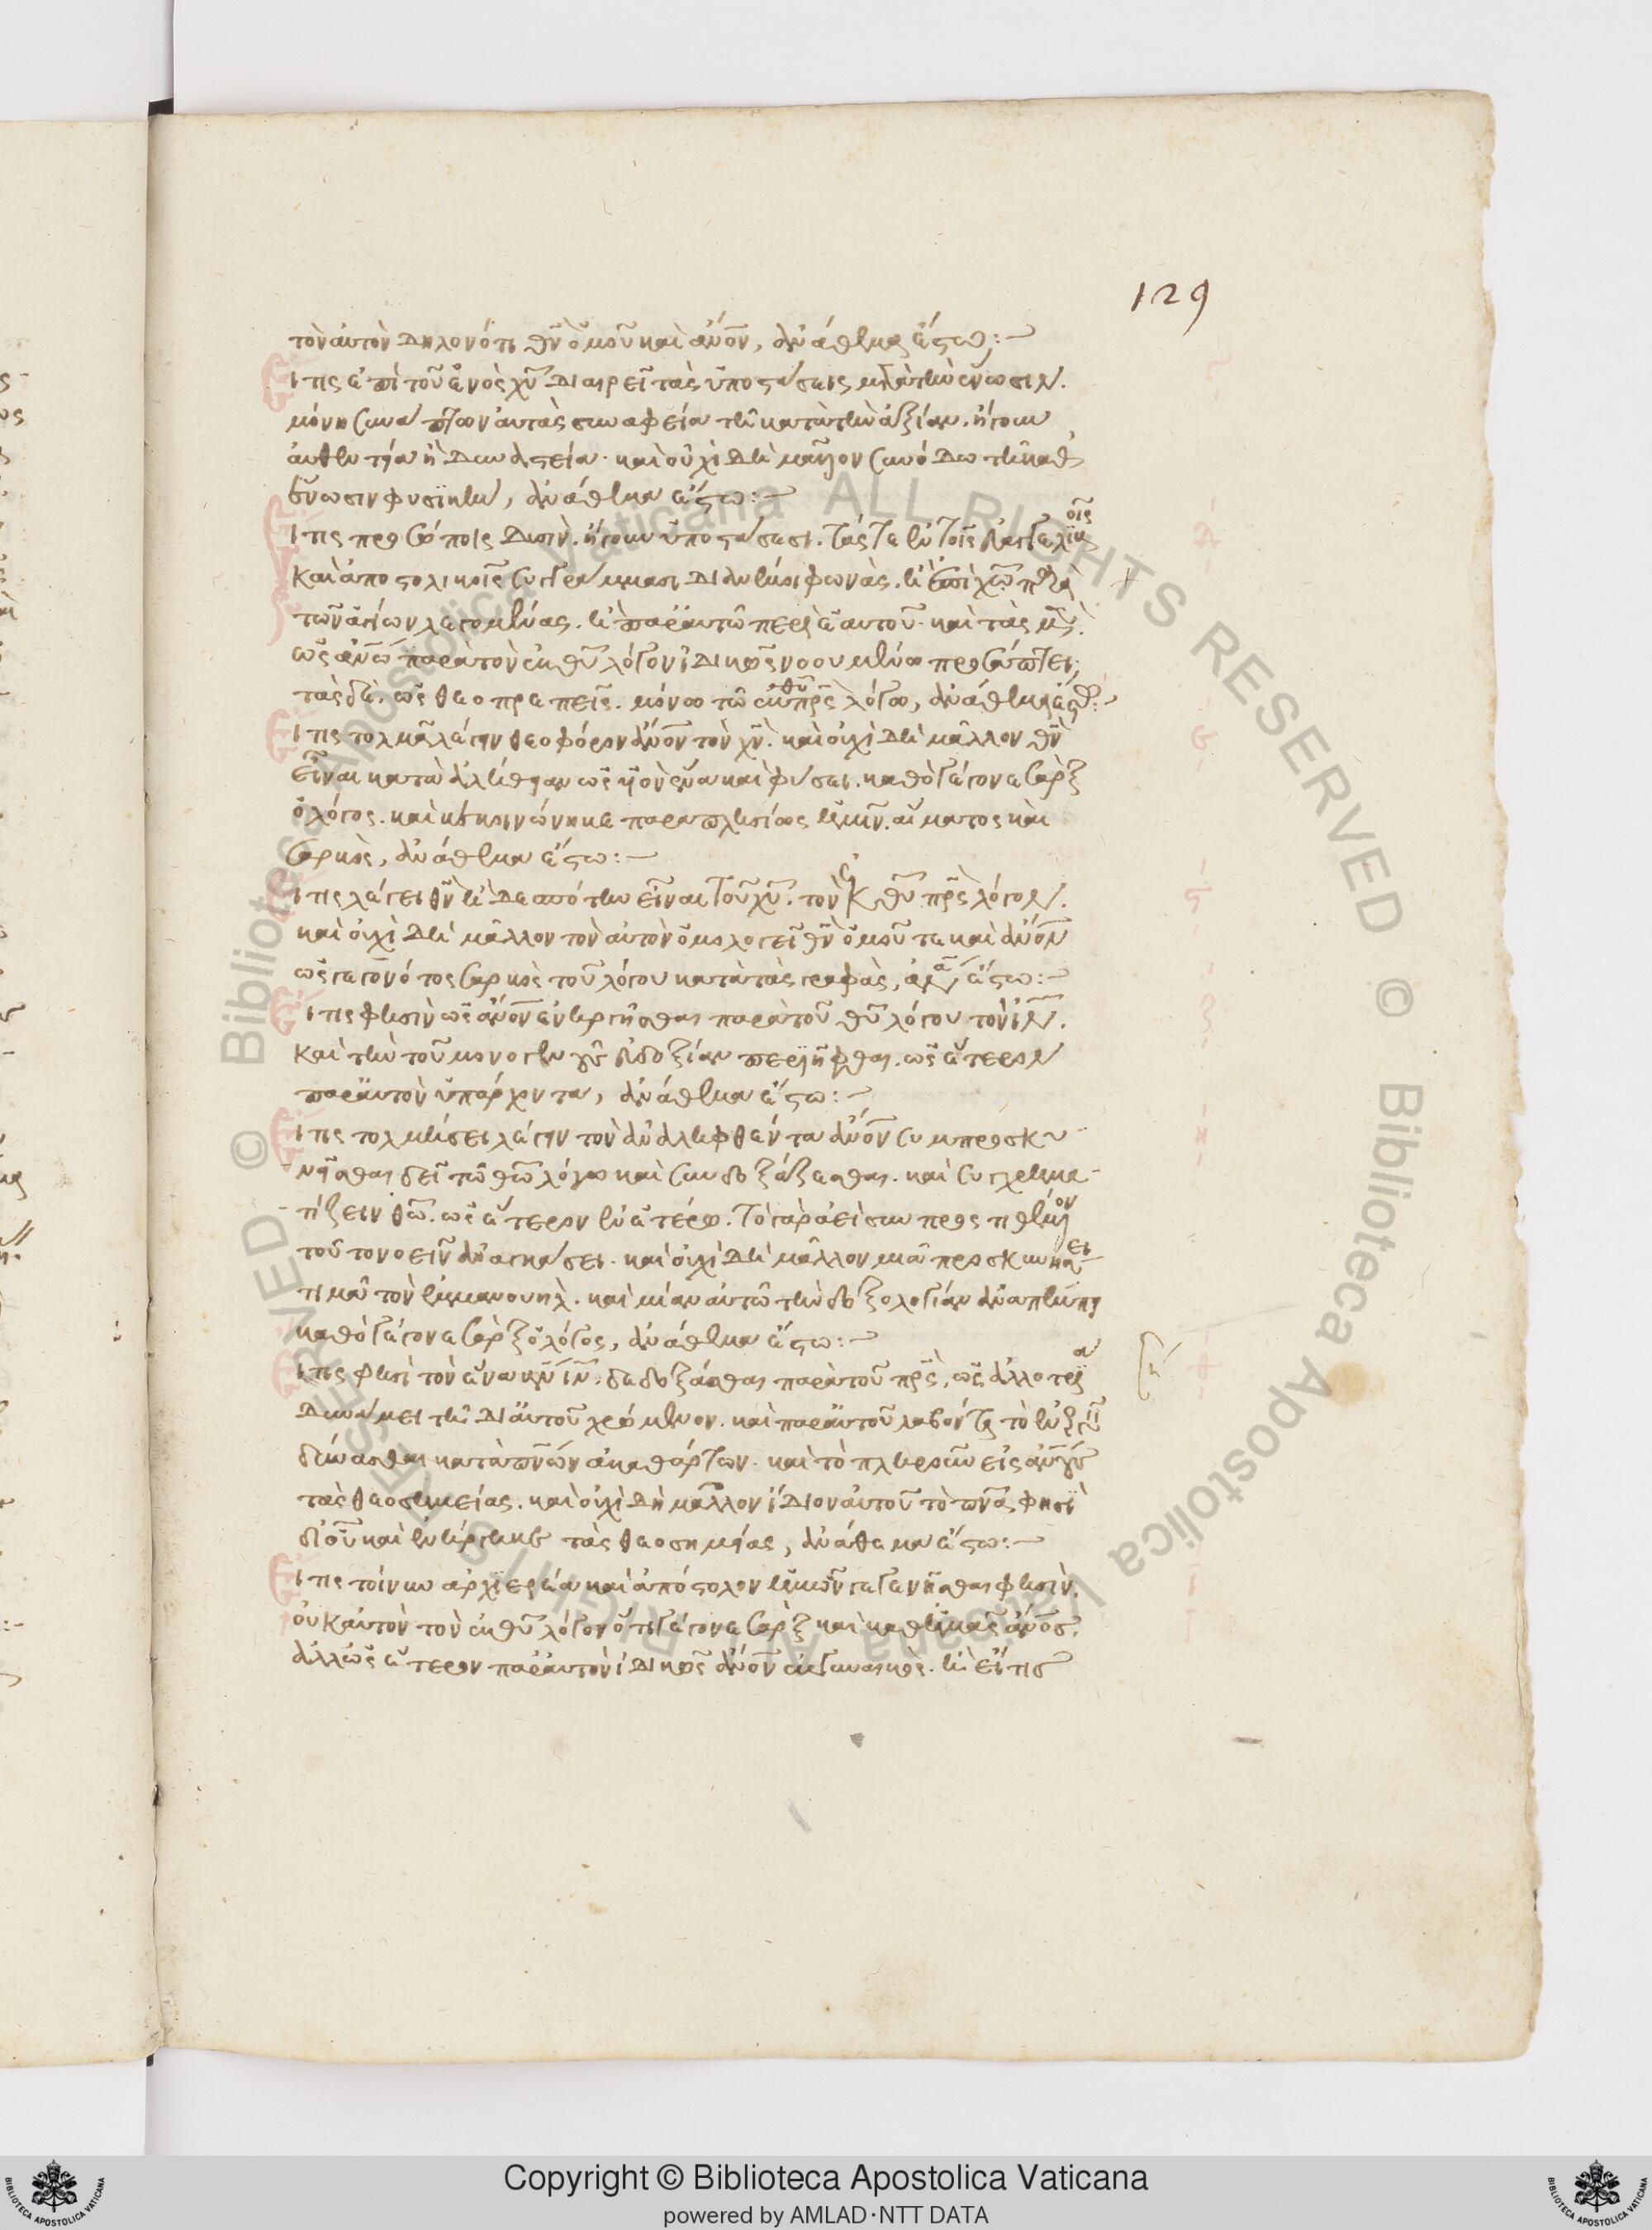 129
τὸν αὐτὸν δηλονότι θν̅ ὁμοῦ καὶ ἀνο̅ν, ἀνάθεμα ἔστω:~
Εἴ τις ἐπὶ τοῦ ἑνὸς χυ̅ διαιρεῖ τὰς ὑποστάσεις μετὰ τὴν ἕνωσιν.
μόνη συνάπτων αὐτὰς συναφεία τῆ κατὰ τὴν ἀξίαν. ἤγουν
αὐθεντία ἢ δυναστεία. καὶ οὐχὶ δὴ μᾶλλον συνόδω τῆ καθ
ἕνωσιν φυσικὴν, ἀνάθεμα ἔστω:~
Εἴ τις προσώποις δυσὶν. ἤγουν ὑποστάσεσι. τάς τε ἐν τοῖς εὐαγγελικοῖς
καὶ ἀποστολικοῖς συγγράμμασι διανέμει φωνὰς. ἢ ἐπὶ χω̅ παρὰ
τῶν ἁγίων λεγομένας. ἢ παρ αὐτῶ περὶ ἑαυτοῦ. καὶ τὰς μὲν
ὡς ἀνω̅ παρὰ τὸν ἐκ θυ̅ λόγον ἰδικῶς νοουμένω προσάπτει,
τὰς δὲ. ὡς θεοπρεπεῖς. μόνω τῶ ἐκ θυ̅ πρς̅ λόγω, ἀνάθεμα ἔστω:~
Εἴ τις τολμᾶ λέγειν θεοφόρον ἀνο̅ν τὸν χν̅. καὶ οὐχὶ δὴ μᾶλλον θν̅
εἶναι κατὰ ἀλήθειαν ὡς υἱὸν ἕνα καὶ φύσει. καθὸ γέγονε σὰρξ
ὁ λόγος. καὶ κεκοινώνηκε παραπλησίως ἡμῖν. αἵματος καὶ
σαρκὸς, ἀνάθεμα ἔστω:~
Εἴ τις λέγει θν̅ ἢ δεσπότην εἶναι τοῦ χυ̅. τὸν ἐκ θυ̅ πρς̅ λόγον.
καὶ οὐχὶ δὴ μᾶλλον τὸν αὐτὸν ὁμολογεῖ θν̅ ὁμοῦ τε καὶ ἀνο̅ν
ὡς γεγονότος σαρκὸς τοῦ λόγου κατὰ τὰς γραφὰς, ἀνάθεμα ἔστω:~
Εἴ τις φησὶν ὡς ἀνο̅ν ἐνηργῆσθαι παρὰ τοῦ θυ̅ λόγου τὸν ιν̅.
καὶ τὴν τοῦ μονογενοῦς εὐδοξίαν περιῆφθαι. ὡς ἕτερον
παρ αὐτὸν ὑπάρχοντα, ἀνάθεμα ἔστω:~
Εἴ τις τολμήσει λέγειν τὸν ἀναληφθέντα ἀνο̅ν συμπροσκυ
νῆσθαι δεῖ τῶ θω̅ λόγω καὶ συνδοξάζεσθαι. καὶ συγχρημα
τίζειν θω̅. ὡς ἕτερον ἐν ἑτέρω. τὸ γὰρ ἀεὶ συν προστιθέμενον
τοῦτο νοεῖν ἀναγκάσει. καὶ οὐχὶ δὴ μᾶλλον μιᾶ προσκυνήσει
τιμᾶ τὸν ἐμμανουὴλ. καὶ μίαν αὐτῶ τὴν δοξολογίαν ἀναπέμπει
καθὸ γέγονε σὰρξ ὁ λόγος, ἀνάθεμα ἔστω:~
Εἴ τις φησὶ τὸν ἕνα κν̅ ιν̅. δεδοξάσθαι παρὰ τοῦ πνς̅, ὡς ἀλλοτρία
δυνάμει τῆ δι αὐτοῦ χρώμενον. καὶ παρ αὐτοῦ λαβόντα τὸ ἐνεργεῖν
δύνασθαι κατὰ πνάτων ἀκαθάρτων. καὶ τὸ πληροῦν εἰς ἀνους
τὰς θεοσημείας. καὶ οὐχὶ δὴ μᾶλλον ἴδιον αὐτοῦ τὸ πνα̅ φησὶ
δι οὗ καὶ ἐνήργηκε τὰς θεοσημίας, ἀνάθεμα ἔστω:~
Εἴ τις τοίνυν ἀρχιερέα καὶ ἀπόστολον ἡμῶν γεγενῆσθαι φησὶν.
οὐκ αὐτὸν τὸν ἐκ θυ̅ λόγον ὅτι γέγονε σὰρξ καὶ καθ ἡμᾶς ἀνο̅ς.
ἀλλ ὡς ἕτερον παρ αὐτὸν ἰδικῶς ἀνο̅ν ἐκ γυναικὸς. ἢ εἴ τις